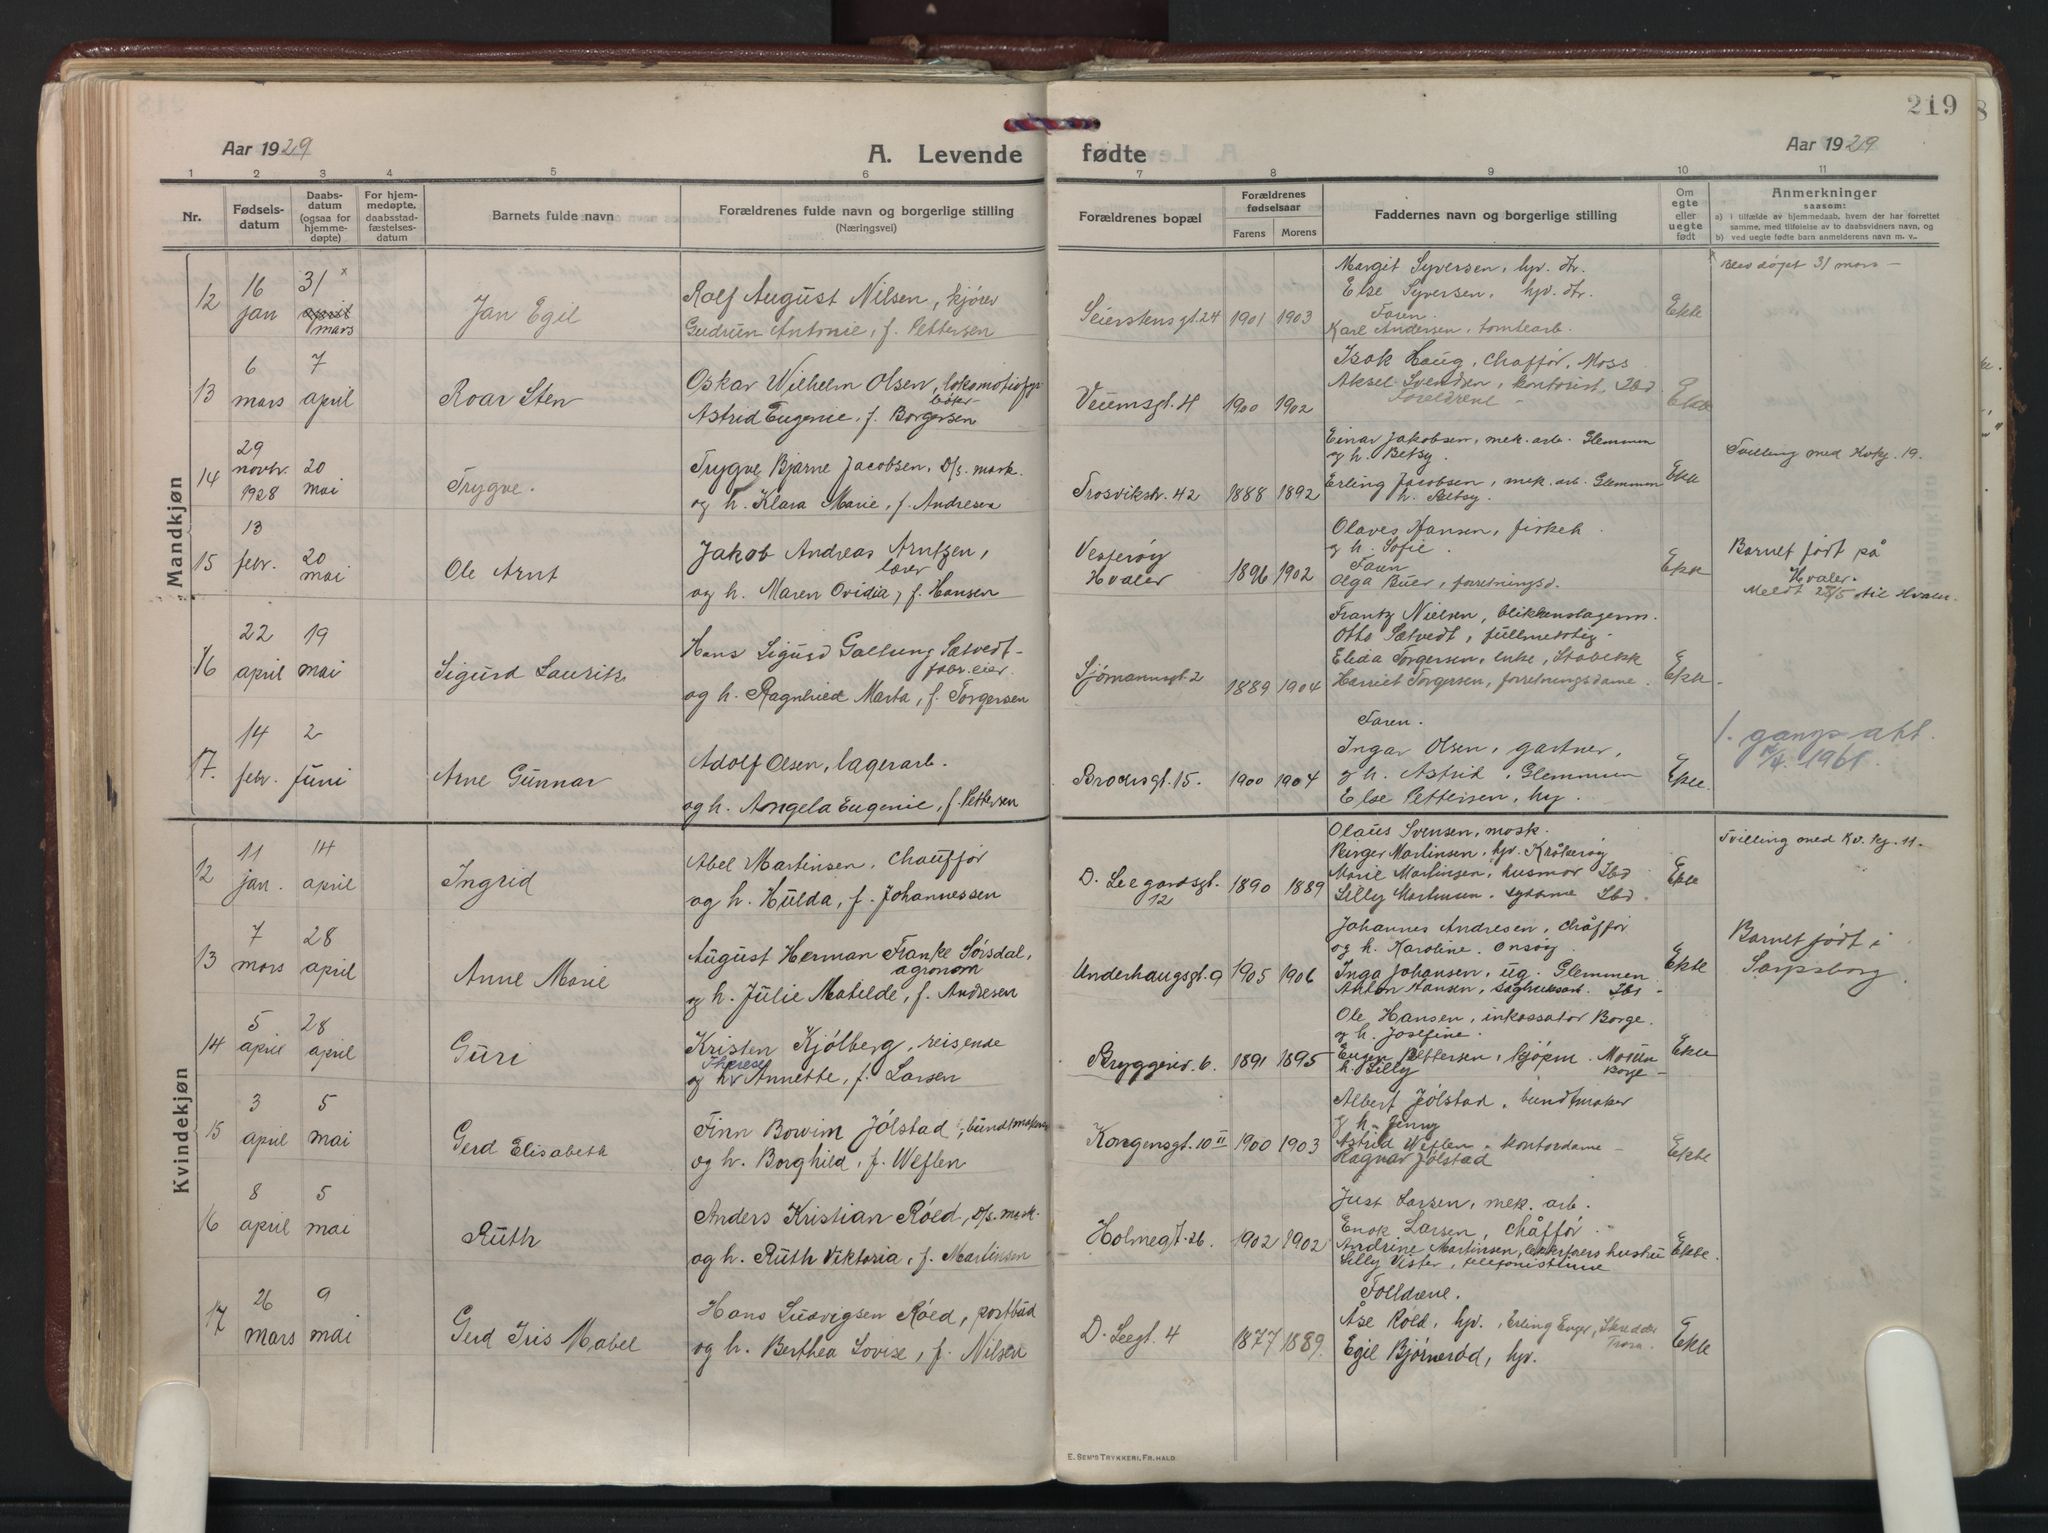 219
Aar 1929
A. Levende fødte
Aar 1929
1 2 3 4 5 6 7 8 9 10 11
Nr.
Fødsels-
datum
Daabs-
datum
(ogsaa for
hjemme-
døpte)
For hjem-
medøpte,
daabsstad-
fæstelses-
datum
Barnets fulde navn
Forældrenes fulde navn og borgerlige stilling
(Næringsvei)
Forældrenes bopæl
Forældrenes
fødselsaar
Farens Morens
Faddernes navn og borgerlige stilling
Om
egte
eller
uegte
født
Anmerkninger
saasom:
a) i tilfælde av hjemmedaab, hvem der har forrettet
samme, med tilføielse av to daabsvidners navn, og
b) ved uegte fødte barn anmelderens navn m. v..
Mandkjøn
12
16
jan
31 x
april
mars
Jan Egil
Rolf August Nilsen, kjører
Gudrun Antonie, f. Pettersen
Seierstensgt. 24
1901 1903
Margit Syversen, hp. dr.
Else Syversen, hp. dr.
Faren.
Karl Andersen, tomtearb.
Ekte
x Blev døpt 31 mars -
13
6
mars
7
april
Roar Sten
Oskar Wilhelm Olsen, lokomotivfyr-
bøter
Astrid Eugenie, f. Borgersen
Veumsgt. 4
1900 1902
Isak Haug, chaffør, Moss
Aksel Svendsen, kontorist, Ibd
Foreldrene -
Ekte
14
29
novbr.
1928
20
mai
Trygve.
Trygve Bjarne Jacobsen, D/s. mask.
og h. Klara Marie, f. Andresen
Trosvikstr. 42
1888 1892
Einar Jakobsen, mek. arb. Glemmen
og h. Betsy.
Erling Jacobsen, mek. arb. Glemmen
h. Betsy.
Ekte
Tvilling med Kvkj. 19.
15
13
febr.
20
mai
Ole Arnt
Jakob Andreas Arntzen,
og h. Maren Ovidia, f. Hansen
Vesterøy
Hvaler
1896 1902
Olaves Hansen, fiskeh.
og h. Sofie.
Faren
Olga Buer, forretningsd.
Ekte
Barnet født på
Hvaler.
Meldt 28/5 til Hvaler.
16
22
april
19
mai
Sigurd Laurits
Hans Sigurd Galtung Sætvedt -
fabr. eier.
og h. Ragnhild Marta, f. Torgersen
Sjømannsgt. 2
1889 1904
Frantz Nielsen, blikkenslagerm.
Otto Sætvedt, fullmektig.
Elida Torgersen, enke, Stabekk
Harriet Torgersen, forretningsdame.
Ekte
17.
14
febr.
2
juni
Arne Gunnar
Adolf Olsen, lagerarb.
og h. Angela Eugenie, f. Pettersen
Brochsgt. 15.
1900 1904
Faren.
Ingar Olsen, gartner,
og h. Astrid, Glemmen
Else Pettersen, hp.
Ekte.
1. gangs akt.
1961.
Kvindekjøn
12
11
jan.
14
april
Ingrid
Abel Martinsen, chauffør
og h. Hulda, f. Johannessen
D. Leegardsgt.
12
1890 1889
Olaus Svensen, mask.
Birger Martinsen, hp. Kråkerøy
Marie Martinsen, husmor Ibd
Lilly Martinsen, sydame Ibd.
Ekte
Tvilling med Kv. kj. 11.
13
7
mars
28
april
Anne Marie
August Herman Franke Sørsdal,
agronom
og h. Julie Matilde, f. Andresen
Underhaugsgt. 9
1905 1906
Johannes Andresen, chåffør
og h. Karoline. Onsøy
Inga Johansen, ug. Glemmen
Anton Hansen, sagbruksarb. Ibd -
Ekte
Barnet født i
Sarpsborg
14
5
april
28
april
Guri
Kristen Kjølberg, reisende
Therese
og h. Annette, f. Larsen
Bryggeriv. 6.
1891 1895
Ole Hansen, inkassator Borge.
og h. Josefine.
h. Lilly
Borge -
Ekte
15
3
april
5
mai
Gerd Elisabeth
Finn Borvim Jølstad, bundtmaker
og h. Borghild, f. Weflen
Kongensgt. 10 II
1900 1903
Albert Jølstad, bundtmaker
og h. Jenny
Astrid Weflen, kontordame -
Ragnar Jølstad
Ekte
16
8
april
5
mai
Ruth
Anders Kristian Røed, D/s. mask.
og h. Ruth Viktoria, f. Martinsen
Holmegt. 26.
1902 1902
Just Larsen, mek. arb.
Enok Larsen, chåffør.
Andrine Martinsen, hustru
Lilly Vister, telefonistinne
Ekte.
17
26
mars
9
mai
Gerd Iris Mabel
Hans Ludvigsen Røed, postbud
og h. Berthea Lovise, f. Nilsen
D. Leegt. 4
1877 1889.
Foreldrene.
Åse Røld, hp., Erling Enger, Skredder
Egil Bjørnerød, hp.
Ekte
E. SEM'S TRYKKERI, FR.HALD